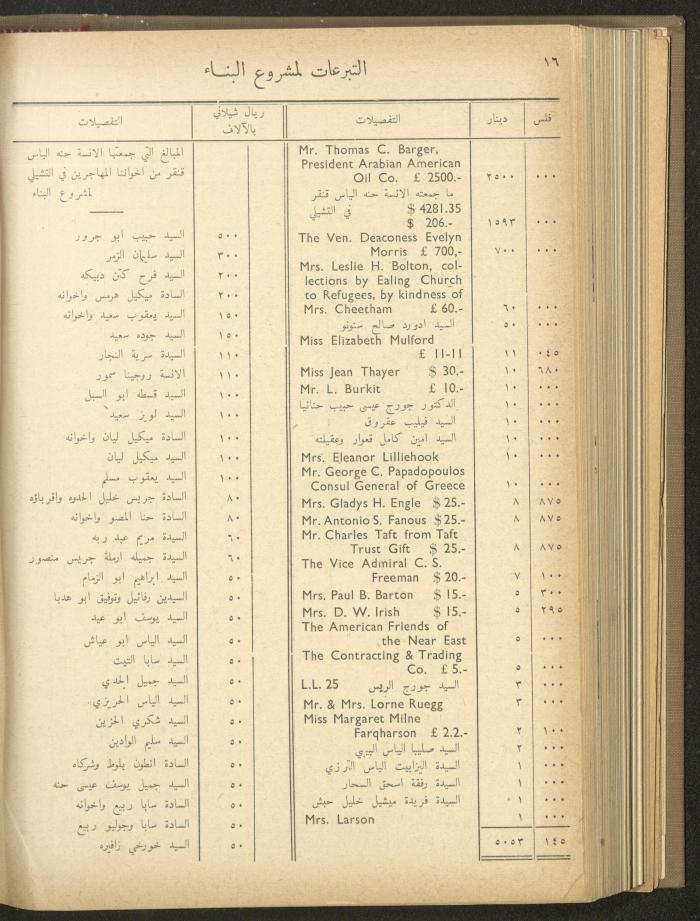 ١٦
التبرعات لمشروع البنـاء
فلس دينار التفصيلات
Mr. Thomas C. Barger,
President Arabian American
Oil Co. £ 2500.- ٢٥٠٠ ٠٠٠
ما جمعته الانسة حنه الياس قنقر
في التشيلي $ 4281.35
$ 206.- ١٥٩٣ ٠٠٠
The Ven. Deaconess Evelyn
Morris £ 700,- ٧٠٠ ٠٠٠
Mrs. Leslie H. Bolton, col-
lections by Ealing Church
to Refugees, by kindness of
Mrs. Cheetham £ 60.- ٦٠ ٠٠٠
السيد ادورد صالح سنونو ٥٠ ٠٠٠
Miss Elizabeth Mulford
£ 11-11 ١١ ٠٤٥
Miss Jean Thayer $ 30.- ١٠ ٦٨٠
Mr. L. Burkit £ 10.- ١٠ ٠٠٠
الدكتور جورج عيسى حبيب حنانيا ١٠ ٠٠٠
السيد فيليب عقروق ١٠ ٠٠٠
السيد امين كامل قعوار وعقيلته ١٠ ٠٠٠
Mrs. Eleanor Lilliehook ١٠ ٠٠٠
Mr. George C. Papadopoulos
Consul General of Greece ١٠ ٠٠٠
Mrs. Gladys H. Engle $ 25.- ٨ ٨٧٥
Mr. Antonio S. Fanous $ 25.- ٨ ٨٧٥
Mr. Charles Taft from Taft
Trust Gift $ 25.- ٨ ٨٧٥
The Vice Admiral C. S.
Freeman $ 20.- ٧ ١٠٠
Mrs. Paul B. Barton $ 15.- ٥ ٣٠٠
Mrs. D. W. Irish $ 15.- ٥ ٢٩٥
The American Friends of
the Near East ٥ ٠٠٠
The Contracting & Trading
Co. £ 5.- ٥ ٠٠٠
السيد جورج الريس L.L. 25 ٣ ٠٠٠
Mr. & Mrs. Lorne Ruegg ٣ ٠٠٠
Miss Margaret Milne
Farqharson £ 2.2.- ٢ ١٠٠
السيد صليبا الياس البيبي ٢ ٠٠٠
السيدة اليزابيت الياس الترزي ١ ٠٠٠
السيدة رفقة اسحق السحار ١ ٠٠٠
السيدة فريدة ميشيل خليل حبش ١ ٠٠٠
Mrs. Larson ١ ٠٠٠
٥٠٥٣ ١٤٥
ريال شيلاني بالآلاف التفصيلات
المبالغ التي جمعتها الانسة حنه الياس
قنقر من اخواننا المهاجرين في التشيلي
لمشروع البناء
٥٠٠ السيد حبيب ابو جرور
٣٠٠ السيد سليمان الزمر
٢٠٠ السيد فرح كتن دبيكه
٢٠٠ السادة ميكيل هرمس واخوانه
١٥٠ السيد يعقوب سعيد واخوانه
١٥٠ السيد جوده سعيد
١١٠ السيدة سرية النجار
١١٠ الانسة روجينا سمور
١٠٠ السيد قسطه ابو السبل
١٠٠ السيد لويز سعيد
١٠٠ السادة ميكيل ليان واخوانه
١٠٠ السيد ميكيل ليان
١٠٠ السيد يعقوب مسلم
٨٠ السادة جريس خليل الحدوه واقرباؤه
٨٠ السادة حنا المصو واخوانه
٦٠ السيدة مريم عبد ربه
٦٠ السيدة جميله ارملة جريس منصور
٥٠ السيد ابراهيم ابو الزمام
٥٠ السيدين رفائيل وتوفيق ابو هديا
٥٠ السيد يوسف ابو عيد
٥٠ السيد الياس ابو عياش
٥٠ السيد سابا التيت
٥٠ السيد جميل الحدي
٥٠ السيد الياس الحريزي
٥٠ السيد شكري الحزين
٥٠ السيد سليم الوادين
٥٠ السادة انطون بلوط وشركاه
٥٠ السيد جميل يوسف عيسى حنه
٥٠ السادة سابا ربيع واخوانه
٥٠ السادة سابا وجوليو ربيع
٥٠ السيد خورخي زافيره